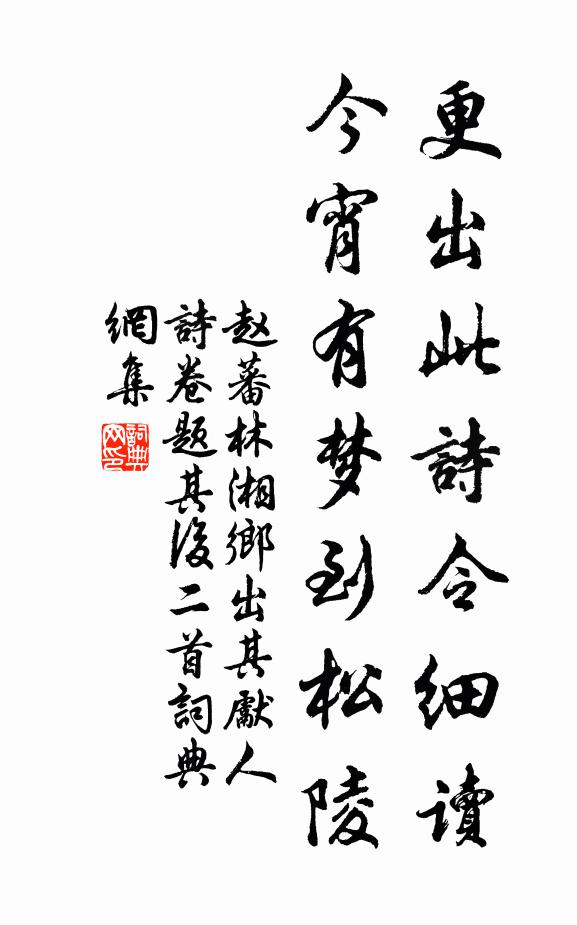 更出此詩令细讀
今宵有梦到松陵
赵蕃林湘鄉出其獻人
詩卷題其後二首詞典
網集
詞典网印